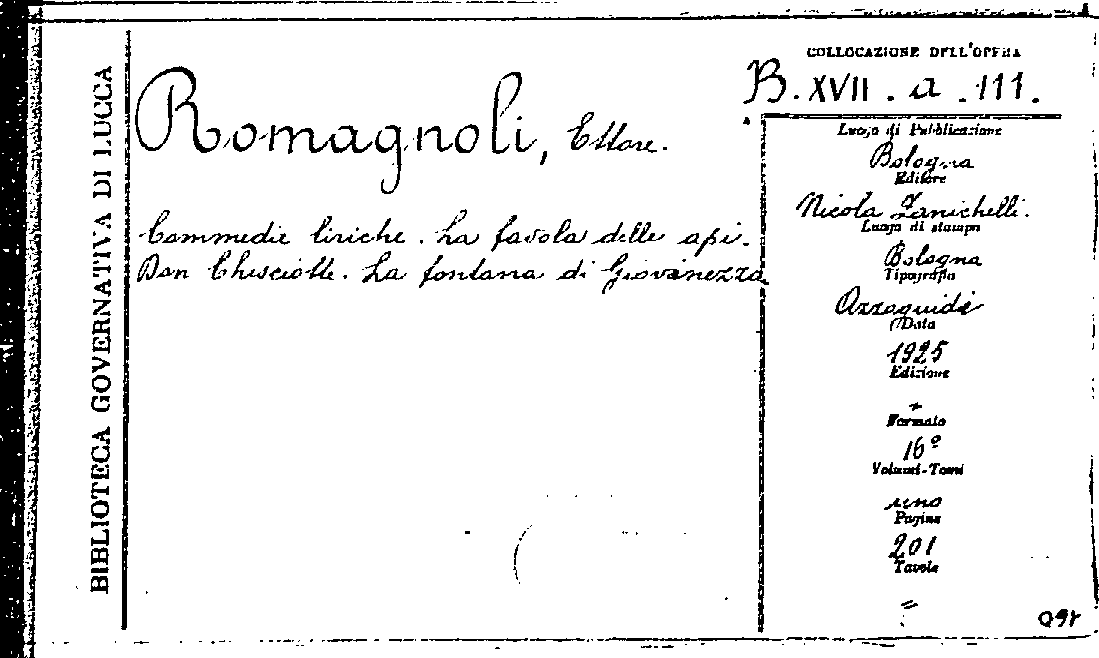 BIBLIOTECA GOVERNATIVA DI LUCCA
COLLOCAZIONE DELL'OPERA
B. XVII. a. 111.
Romagnoli, Ettore.
Commedie liriche. La favola delle api.
Don Chisciotte. La fontana di Giovinezza
Luogo di Pubblicazione
Bologna
Editore
Nicola Zanichelli.
Luogo di stampa
Bologna
Tipografia
Azzoguidi
Data
1925
Edizione
Formato
16º
Volumi-Tomi
uno
Pagine
201
Tavole